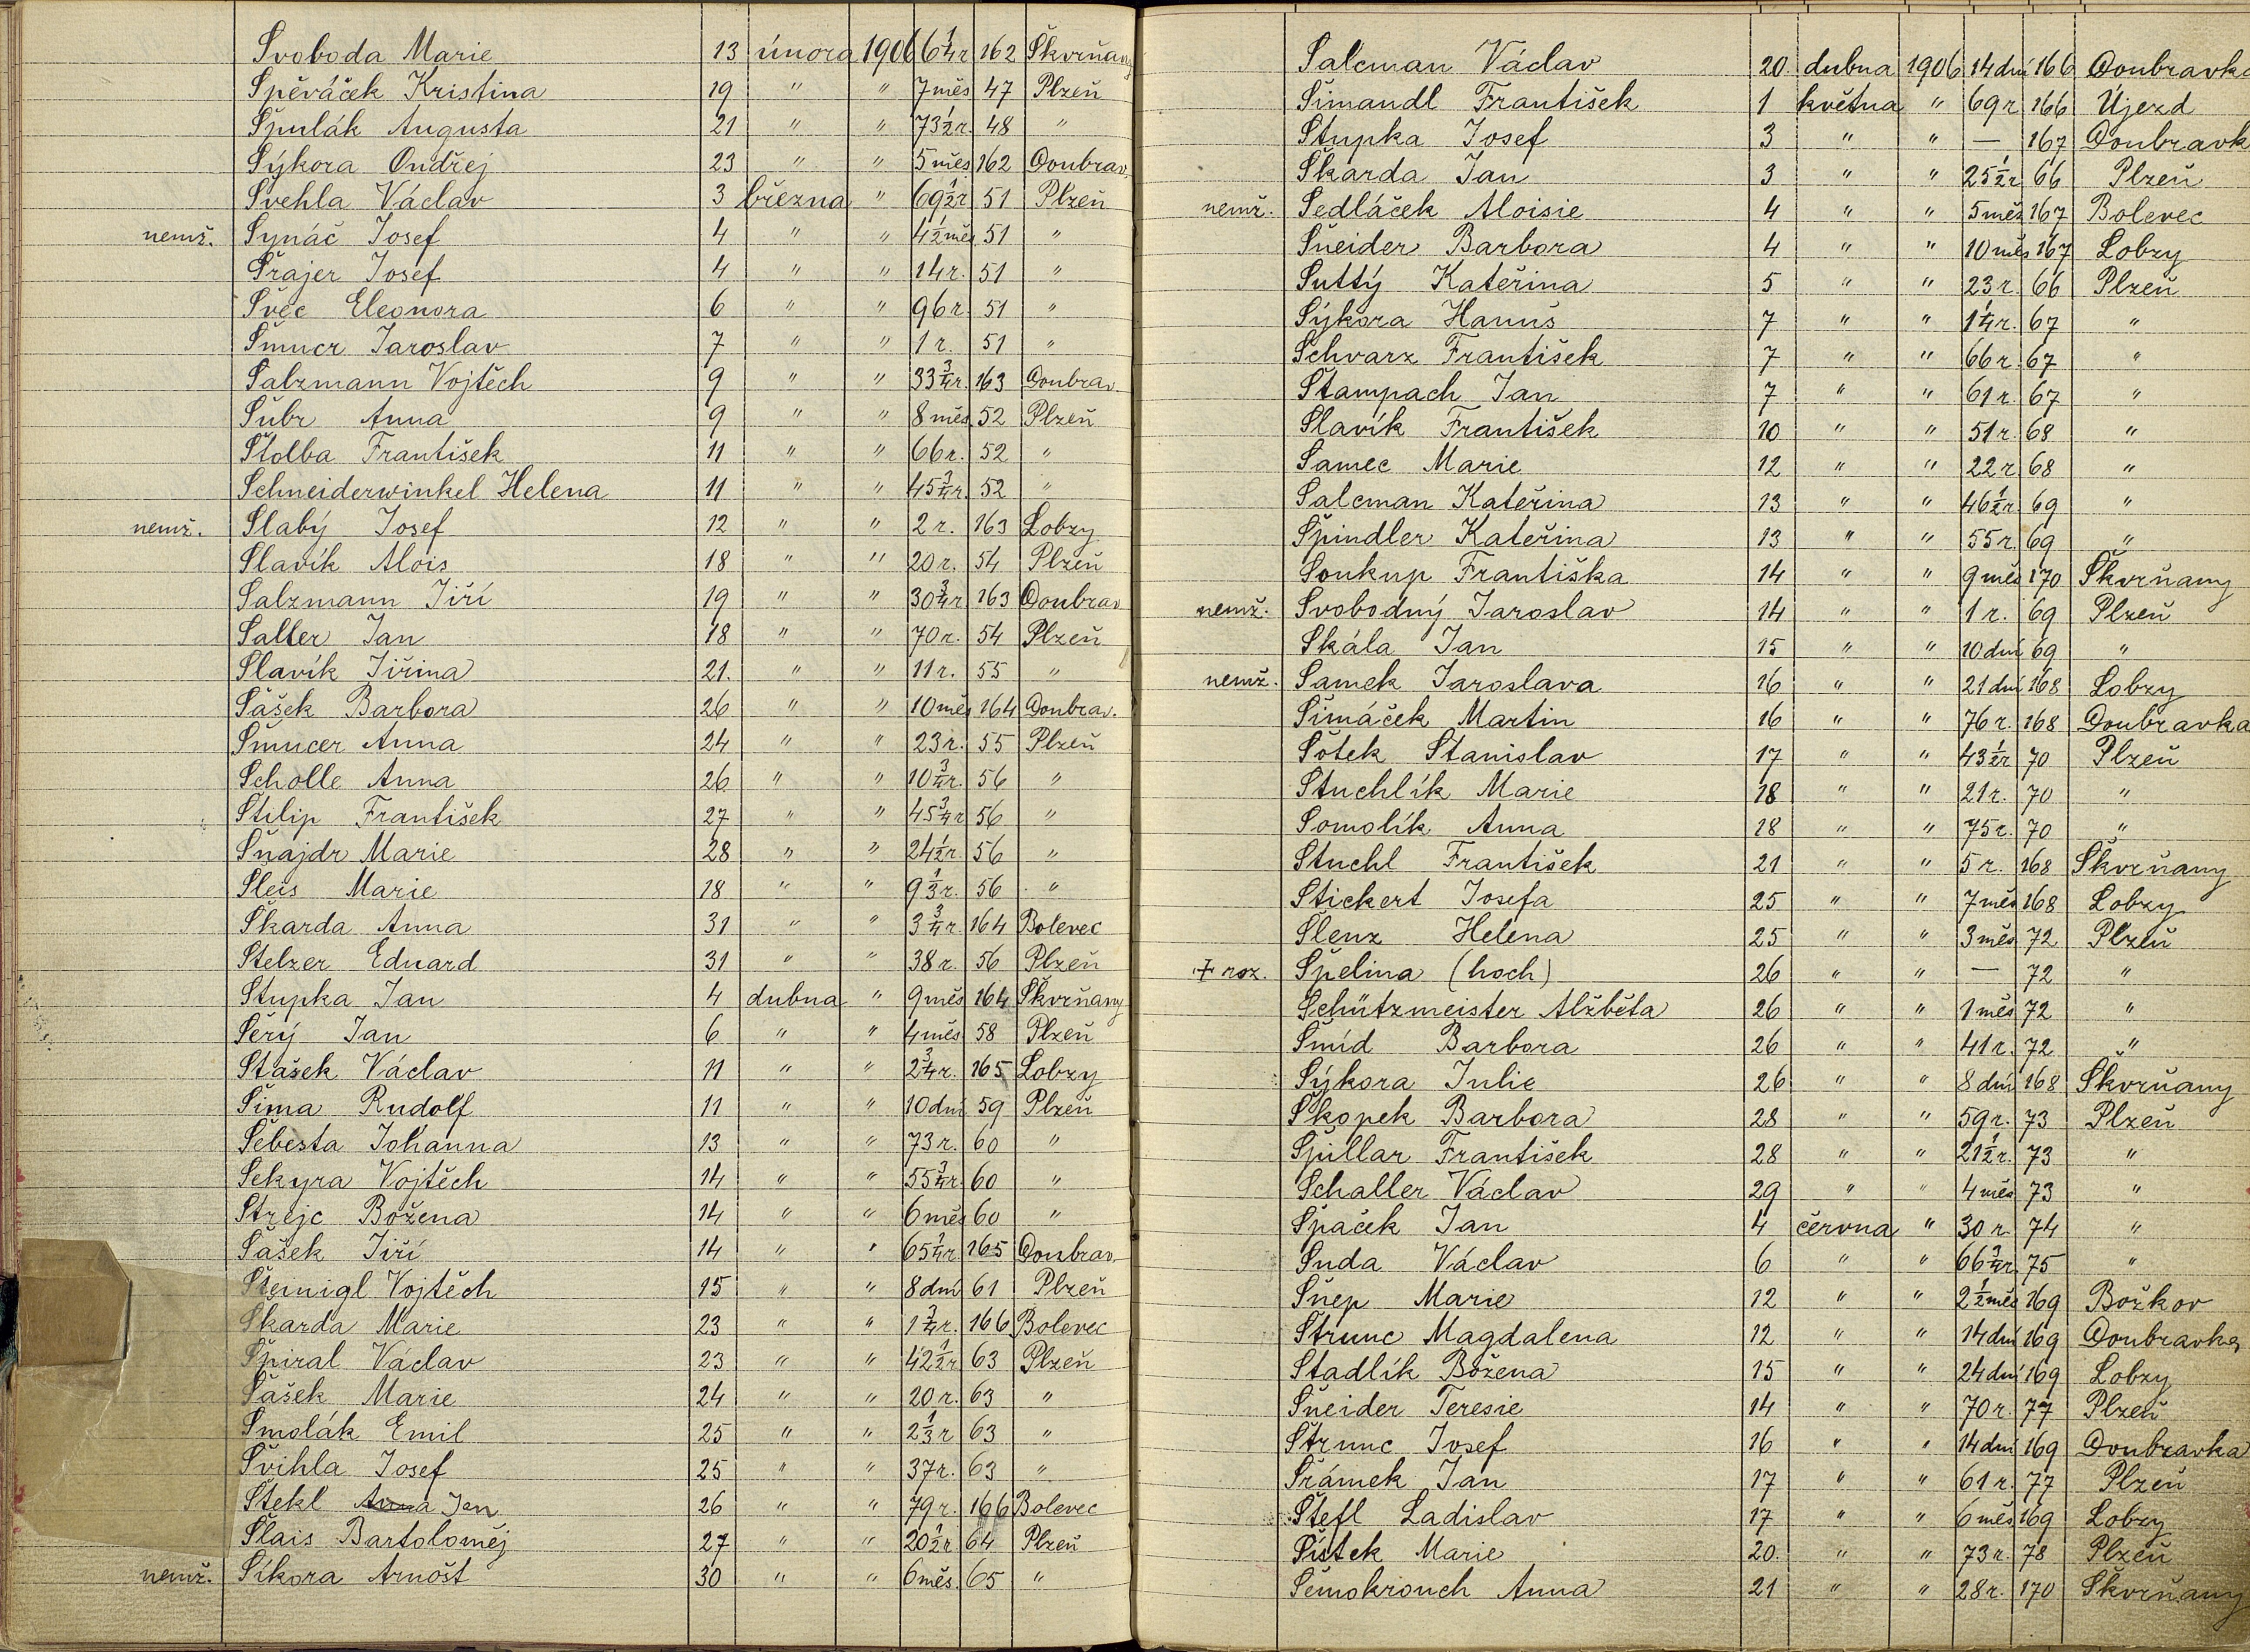 Svoboda Marie 13 února 1906 6 1/4 r 162 Skvrňany
Spěváček Kristina 19 " " 7 měs 47 Plzeň
Špulák Augusta 21 " " 73 1/2 r. 48 "
Sýkora Ondřej 23 " " 5 měs 162 Doubrav.
Švehla Václav 3 března " 69 1/2 r 51 Plzeň
nemž. Synáč Josef 4 " " 4 1/2 měs 51 "
Šrajer Josef 4 " " 14 r. 51 "
Švec Eleonora 6 " " 96 r. 51 "
Šmucr Jaroslav 7 " " 1 r. 51 "
Salzmann Vojtěch 9 " " 33 3/4 r. 163 Doubrav.
Šubr Anna 9 " " 8 měs. 52 Plzeň
Štolba František 11 " " 66 r. 52 "
Schneiderwinkel Helena 11 " " 45 3/4 r. 52 "
nemž. Slabý Josef 12 " " 2 r. 163 Lobzy
Slavík Alois 18 " " 20 r. 54 Plzeň
Salzmann Jiří 19 " " 30 3/4 r 163 Doubrav
Saller Jan 18 " " 70 r. 54 Plzeň
Slavík Jiřina 21. " " 11 r. 55 "
Šašek Barbora 26 " " 10 měs 164 Doubrav.
Šmucer Anna 24 " " 23 r. 55 Plzeň
Scholle Anna 26 " " 10 3/4 r. 56 "
Štilip František 27 " " 45 3/4 r 56 "
Šnajdr Marie 28 " " 24 1/2 r. 56 "
Šleis Marie 18 " " 9 1/3 r. 56 "
Škarda Anna 31 " " 3 3/4 r. 164 Bolevec
Stelzer Eduard 31 " " 38 r. 56 Plzeň
Stupka Jan 4 dubna " 9 měs 164 Skvrňany
Šerý Jan 6 " " 4 měs. 58 Plzeň
Stašek Václav 11 " " 2 3/4 r. 165 Lobzy
Šima Rudolf 11 " " 10 dní 59 Plzeň
Šebesta Johanna 13 " " 73 r. 60 "
Sekyra Vojtěch 14 " " 55 3/4 r. 60 "
Strejc Božena 14 " " 6 měs 60 "
Šašek Jiří 14 " " 65 1/4 r. 165 Doubrav.
Vojtěch 15 " " 8 dní 61 Plzeň
Škarda Marie 23 " " 1 3/4 r. 166 Bolevec
Špiral Václav 23 " " 42 1/2 r 63 Plzeň
Šašek Marie 24 " " 20 r. 63 "
Smolák Emil 25 " " 2 1/3 r 63 "
Švihla Josef 25 " " 37 r. 63 "
Štekl Anna Jan 26 " " 79 r. 166 Bolevec
Šlais Bartoloměj 27 " " 20 1/2 r 64 Plzeň
nemž. Síkora Arnošt 30 " " 6 měs. 65 "
Salcman Václav 20. dubna 1906 14 dní 166 Doubravka
Šimandl František 1 května " 69 r. 166 Újezd
Stupka Josef 3 " " — 167 Doubravk
Škarda Jan 3 " " 25 1/2 r 66 Plzeň
nemž. Sedláček Aloisie 4 " " 5 měs 167 Bolevec
Šneider Barbora 4 " " 10 měs 167 Lobzy
Suttý Kateřina 5 " " 23 r. 66 Plzeň
Sýkora Hanuš 7 " " 1 1/4 r. 67 "
Schvarz František 7 " " 66 r. 67 "
Štampach Jan 7 " " 61 r. 67 "
Slavík František 10 " " 51 r. 68 "
Samec Marie 12 " " 22 r. 68 "
Salcman Kateřina 13 " " 46 1/2 r. 69 "
Špindler Kateřina 13 " " 55 r. 69 "
Soukup Františka 14 " " 9 měs 170 Skvrňany
nemž. Svobodný Jaroslav 14 " " 1 r. 69 Plzeň
Skála Jan 15 " " 10 dní 69 "
nemž. Samek Jaroslava 16 " " 21 dní 168 Lobzy
Šimáček Martin 16 " " 76 r. 168 Doubravka
Šótek Stanislav 17 " " 43 1/2 r 70 Plzeň
Stuchlík Marie 18 " " 21 r. 70 "
Somolík Anna 18 " " 75 r. 70 "
Stuchl František 21 " " 5 r. 168 Skvrňany
Stickert Josefa 25 " " 7 měs 168 Lobzy
Slenz Helena 25 " " 3 měs 72 Plzeň
+ roz. Špelina (hoch) 26 " " — 72 "
Schützmeister Alžběta 26 " " 1 měs 72 "
Šmíd Barbora 26 " " 41 r. 72 "
Sýkora Julie 26 " " 8 dní 168 Skvrňany
Skopek Barbora 28 " " 59 r. 73 Plzeň
Špillar František 28 " " 21 1/2 r. 73 "
Schaller Václav 29 " " 4 měs 73 "
Špaček Jan 4 června " 30 r. 74 "
Suda Václav 6 " " 66 3/4 r. 75 "
Šnep Marie 12 " " 2 1/2 měs 169 Božkov
Strunc Magdalena 12 " " 14 dní 169 Doubravka
Stadlík Božena 15 " " 24 dní 169 Lobzy
Šneider Teresie 14 " " 70 r. 77 Plzeň
Strunc Josef 16 " " 14 dní 169 Doubravka
Šrámek Jan 17 " " 61 r. 77 Plzeň
Štefl Ladislav 17 " " 6 měs 169 Lobzy
Šístek Marie 20. " " 73 r. 78 Plzeň
Semokrouch Anna 21 " " 28 r. 170 Skvrňany